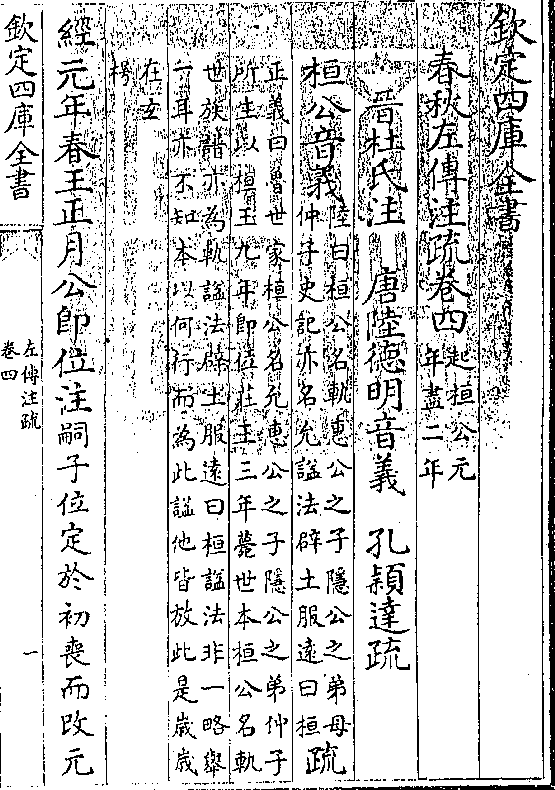 欽定四庫全書
春秋左傳注疏卷四 起桓公元
年盡二年
晉杜氏注 唐陸德明音義 孔穎達疏
桓公音義 陸曰桓公名軌惠公之子隱公之弟母
仲子史記亦名允諡法辟土服遠曰桓 疏
正義曰魯世家桓公名允惠公之子隱公之弟仲子
所生以桓王九年即位莊王三年薨世本桓公名軌
世族譜亦為軌諡法辟土服遠曰桓諡法非一略舉
一耳亦不知本以何行而為此諡他皆放此是歳歳
在玄
枵
經元年春王正月公即位注嗣子位定於初喪而改元
欽定四庫全書
左傳注疏
卷四
一